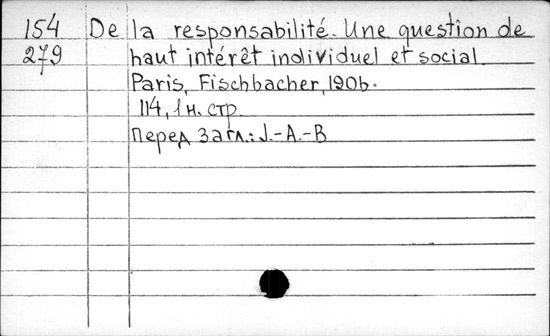 154 De la responsabilité. Une question de
279 haut intérêt individuel et social.
Paris, Fischbacher, 1906.
114, 1 н. стр.
Перед загл.: J.-A.-B